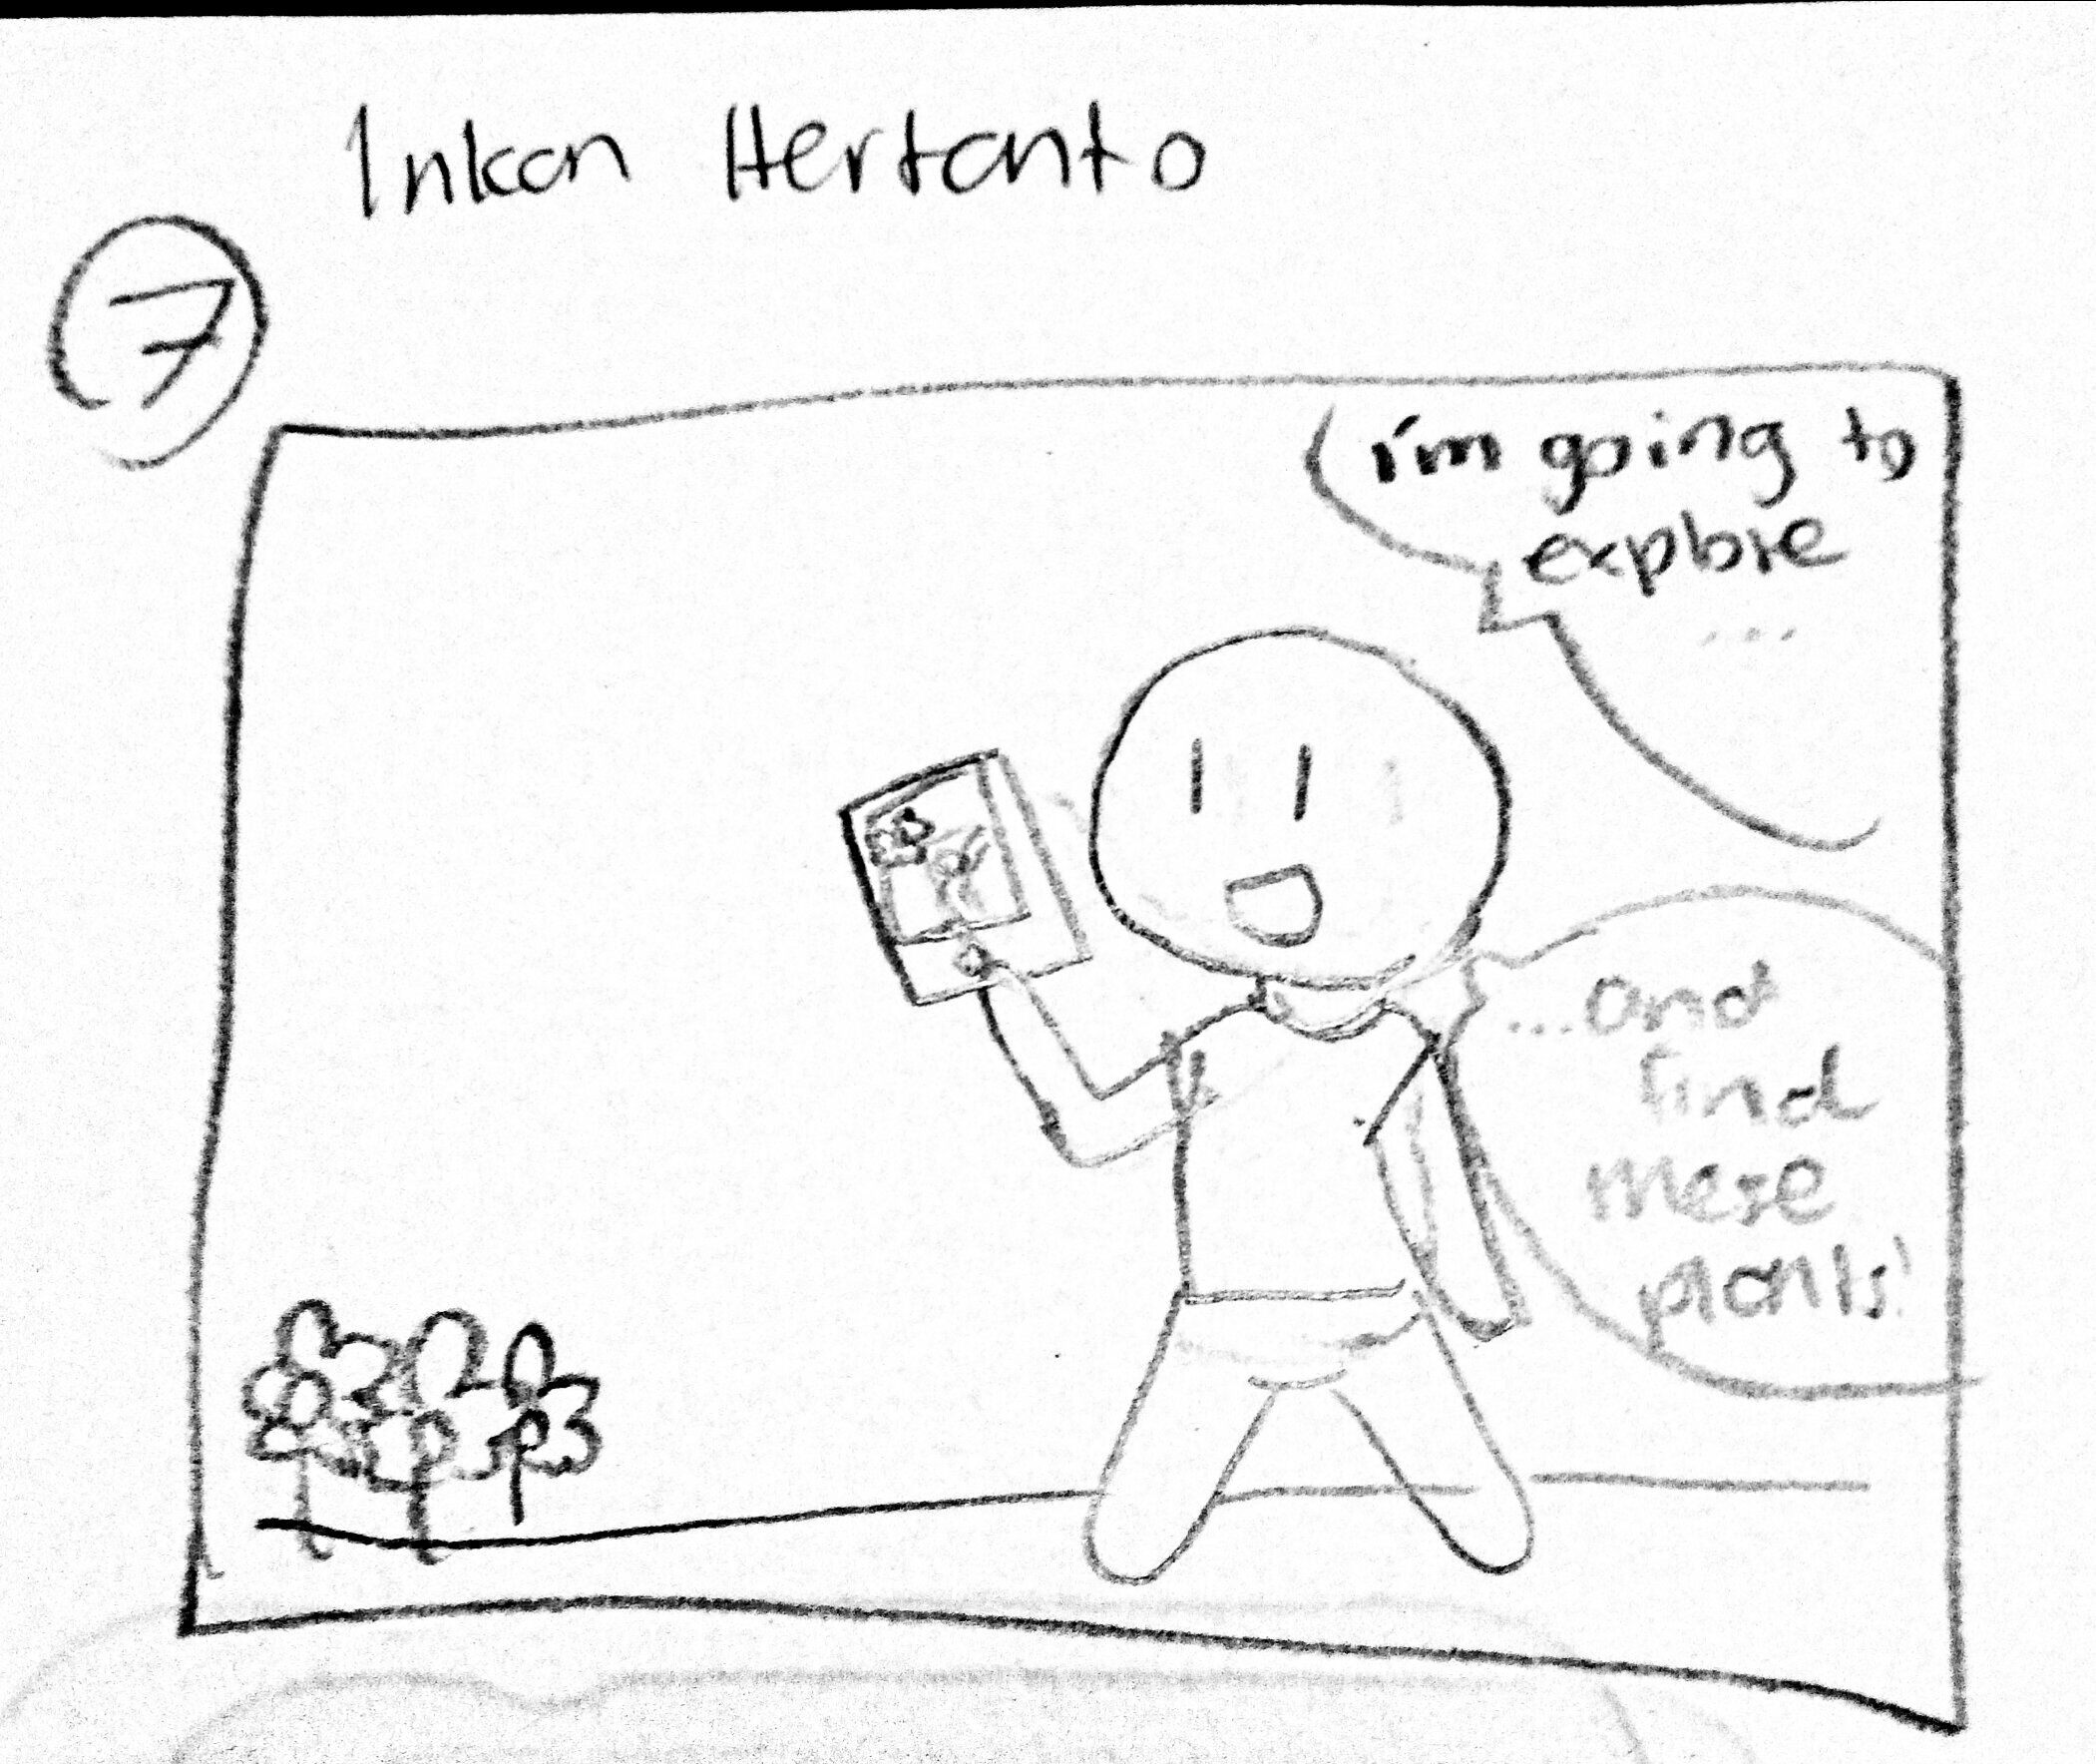 Inkan Hertanto
7
i'm going to
explore
...
...and
find
these
plants!